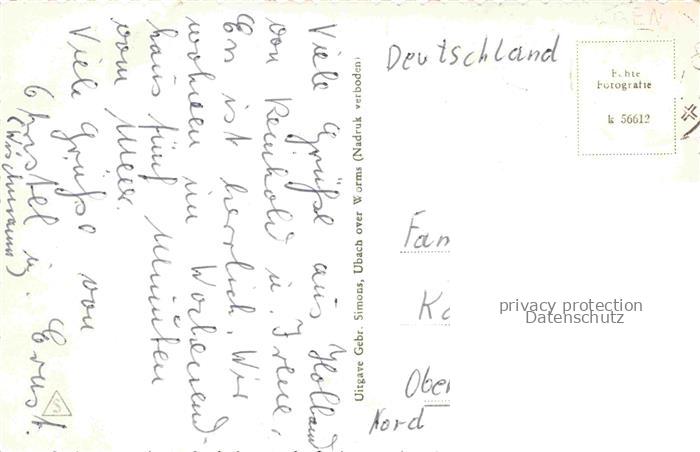 Viele Grüße aus Holland
von Reinhold u. Irene.
Es ist herrlich. Wir
wohnen im Wochenend-
haus fünf Minuten
vom Meer.
Viele Grüße von
Christel u. Ernst.
(Wischmann)
Uitgave Gebr. Simons, Ubach over Worms (Nadruk verboden)
Deutschland
Echte
Fotografie
k 56612
Fam
Ka
Ober
Nord
privacy protection
Datenschutz